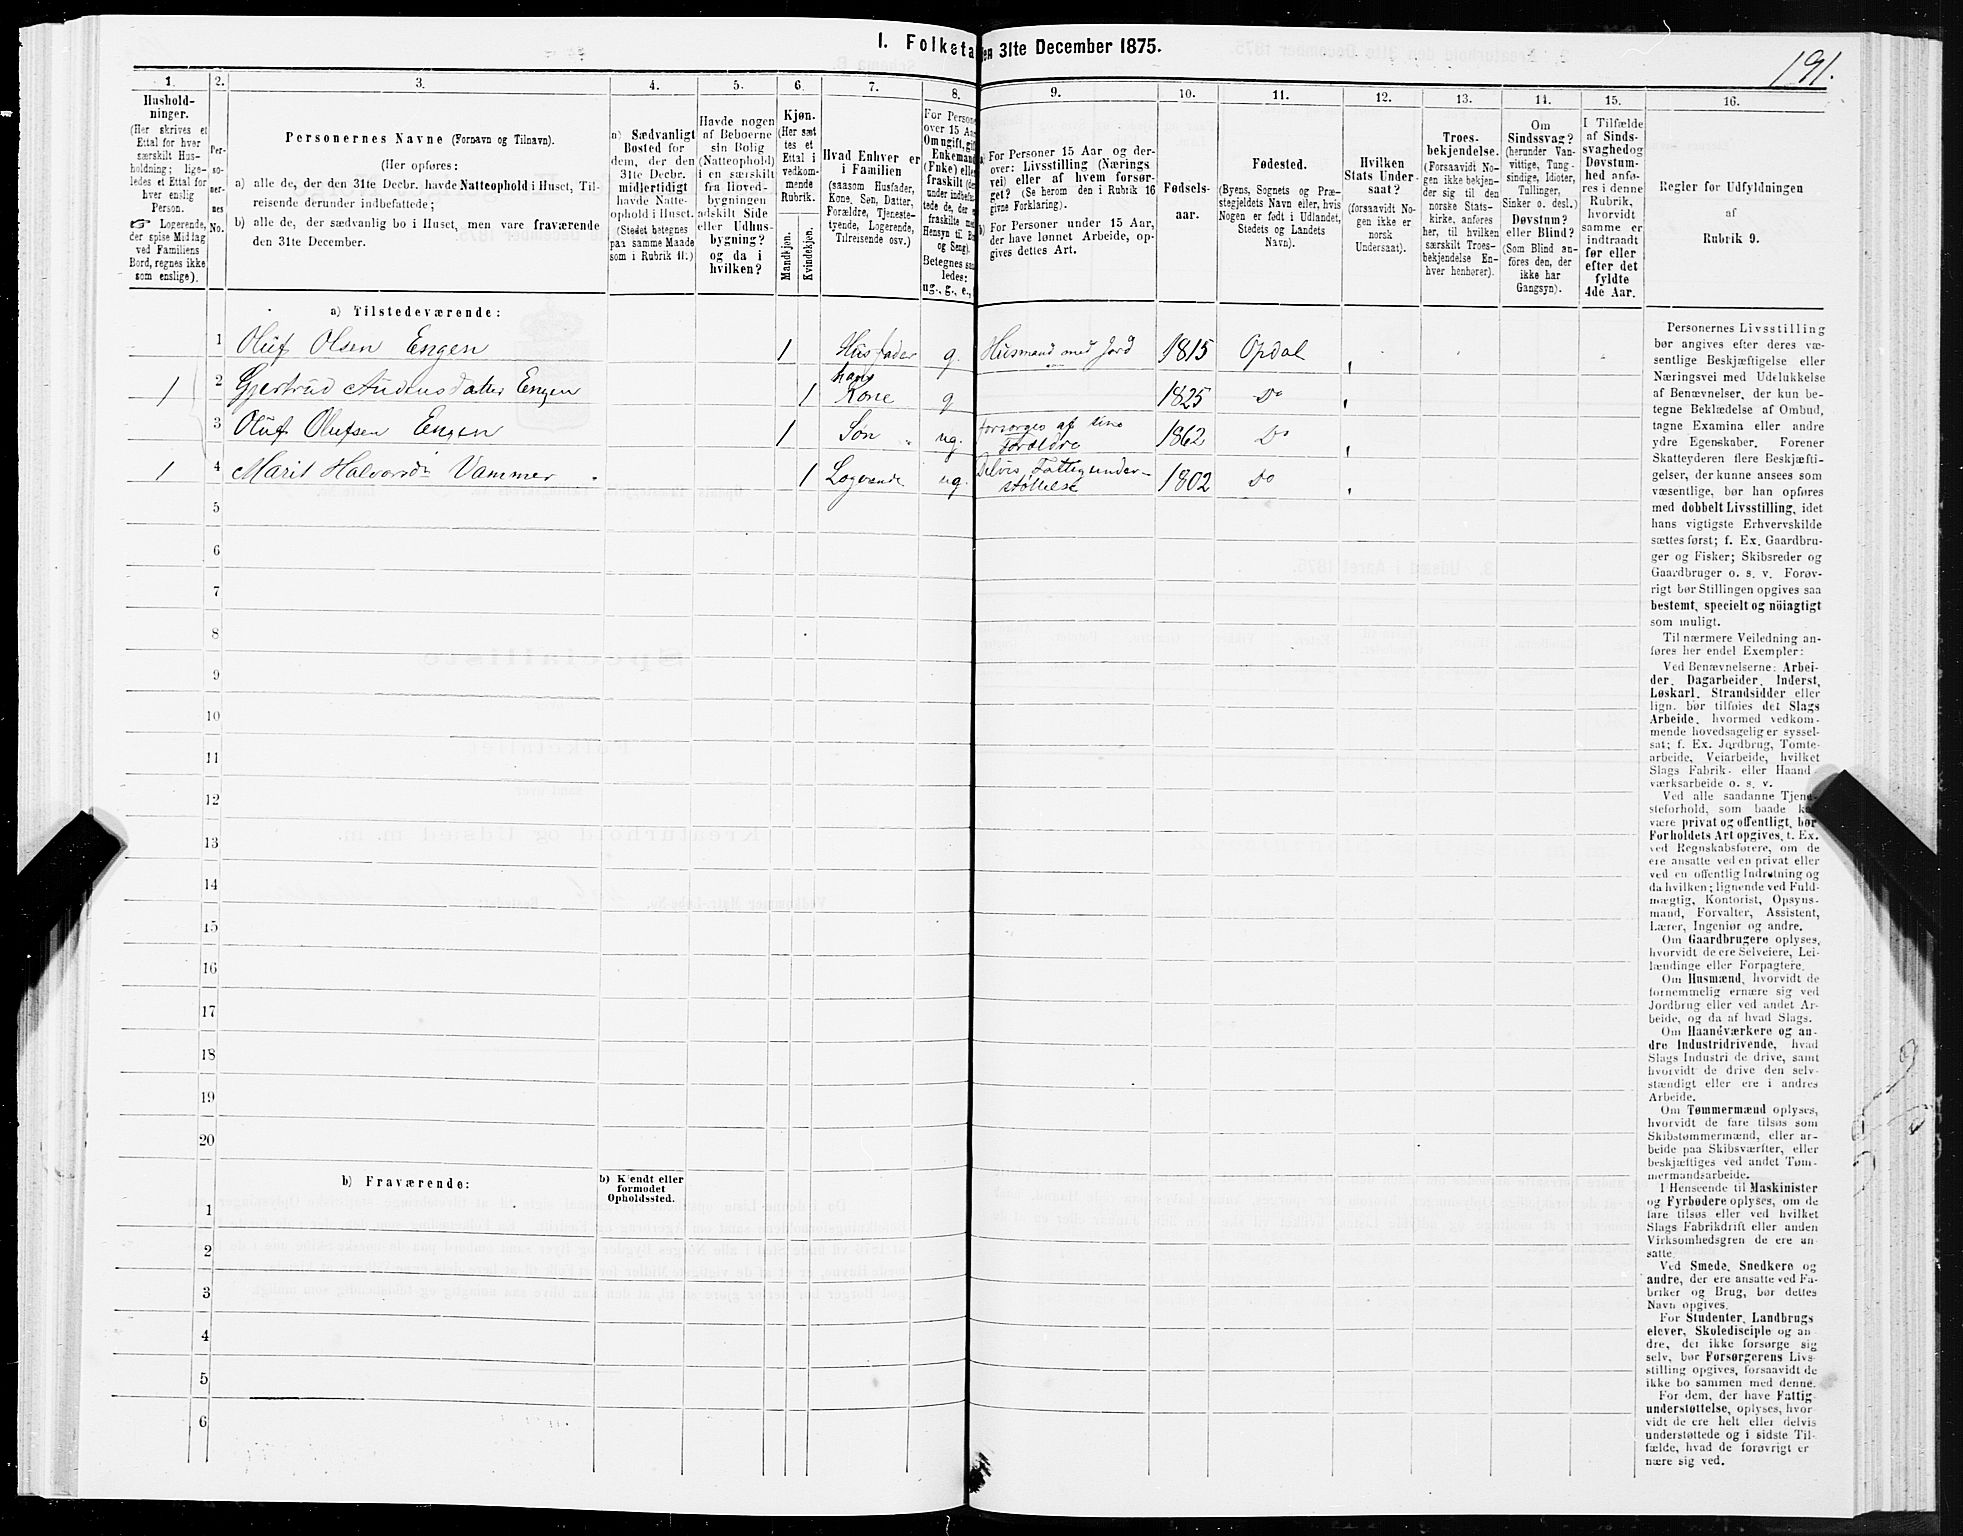 I. Folketa
en 31te December 1875.
191.
1.
2.
3.
4.
5.
6.
7.
8.
9.
10.
11.
12.
13.
14.
15.
16.
Hushold-
ninger.
(Her skrives et
Ettal for hver
særskilt Hus-
holdning; lige-
ledes et Ettal for
hver enslig
Person.
☞ Logerende,
der spise Middag
ved Familiens
Bord, regnes ikke
som enslige).
Per-
so-
ner-
nes
No.
Personernes Navne (Fornavn og Tilnavn).
(Her opføres:
a) alle de, der den 31te Decbr. havde Natteophold i Huset, Til-
reisende derunder indbefattede;
b) alle de, der sædvanlig bo i Huset, men vare fraværende
den 31te December.
a) Sædvanligt
Bosted for
dem, der den
31te Decbr.
midlertidigt
havde Natte-
ophold i Huset.
(Stedet betegnes
paa samme Maade
som i Rubrik 11.)
Havde nogen
af Beboerne
sin Bolig
(Natteophold)
i en særskilt
fra Hoved-
bygningen
adskilt Side
eller Udhus-
bygning?
og da i
hvilken?
Kjøn.
(Her sæt
tes et
Ettal i
vedkom-
mende
Rubrik.
Mandkjøn.
Kvindekjøn.
Hvad Enhver er
i Familien
(saasom Husfader,
Kone, Søn, Datter,
Forældre, Tjeneste-
tyende, Logerende,
Tilreisende osv.)
For Person
over 15 Aa
Om ugift, gif
Enkemand
(Fuke) elle
fraskilt (de
under indbefa
tede de, der e
fraskilte me
Hensyn til Bo
og Seng).
Betegnes saa
ledes:
ug., g., e.,
a) For Personer 15 Aar og der-
over: Livsstilling (Nærings
vei) eller af hvem forsør-
get? (Se herom den i Rubrik 16
givne Forklaring).
b) For Personer under 15 Aar,
der have lønnet Arbeide, op-
gives dettes Art.
Fødsels-
aar.
Fødested.
(Byens, Sognets og Præ-
stegjeldets Navn eller, hvis
Nogen er født i Udlandet,
Stedets og Landets
Navn).
Hvilken
Stats Under-
saat?
(forsaavidt No-
gen ikke er
norsk
Undersaat).
Troes-
bekjendelse.
(Forsaavidt No-
gen ikke bekjen-
der sig til den
norske Stats-
kirke, anføres
her, til hvilken
særskilt Troes-
bekjendelse En-
hver henhører).
Om
Sindssvag?
(herunder Van-
vittige, Tung-
sindige, Idioter,
Tullinger,
Sinker o. desl.)
Døvstum?
eller Blind?
(Som Blind an-
føres den, der
ikke har
Gangsyn).
I Tilfælde
af Sinds-
svaghed og
Døvstum-
hed anfø-
res i denne
Rubrik,
hvorvidt
samme er
indtraadt
før eller
efter det
fyldte
4de Aar.
Regler for Udfyldningen
af
Rubrik 9.
a) Tilstedeværende:
1 Oluf Olsen Engen 1 Husfader g. Husmand med Jord 1815 Opdal
1 2 Gjertrud Audensdatter Engen 1 hans Kone g 1825 Do
3 Oluf Olufsen Engen 1 Søn ug. forsørges af sine
Forældre 1862 Do
1 4 Marit Halvorsd. Vammer 1 Logerende ug. Delvis Fattigunder-
støttelse 1802 Do
5
6
7
8
9
10
11
12
13
14
15
16
17
18
19
20
b) Fraværende:
b) Kjendt eller
formodet
Opholdssted.
1
2
3
4
5
6
Personernes Livsstilling
bør angives efter deres væ-
sentlige Beskjæftigelse eller
Næringsvei med Udelukkelse
af Benævnelser, der kun be-
tegne Beklædelse af Ombud,
tagne Examina eller andre
ydre Egenskaber. Forener
Skatteyderen flere Beskjæfti-
gelser, der kunne ansees som
væsentlige, bør han opføres
med dobbelt Livsstilling, idet
hans vigtigste Erhvervskilde
sættes først; f. Ex. Gaardbru-
ger og Fisker; Skibsreder og
Gaardbruger o. s. v. Forøv-
rigt bør Stillingen opgives saa
bestemt, specielt og nöiagtigt
som muligt.
Til nærmere Veiledning an-
føres her endel Exempler:
Ved Benævnelserne: Arbei-
der, Dagarbeider, Inderst,
Løskarl, Strandsidder eller
lign. bør tilføies det Slags
Arbeide, hvormed vedkom-
mende hovedsagelig er syssel-
sat; f. Ex. Jordbrug, Tomte-
arbeide, Veiarbeide, hvilket
Slags Fabrik- eller Haand-
værksarbeide o. s. v.
Ved alle saadanne Tjene-
steforhold, som baade k
være privat og offentligt, bør
Forholdets Art opgives, t. Ex.
ved Regnskabsførere, om de
ere ansatte ved en privat eller
ved en offentlig Indretning og
da hvilken; lignende ved Fuld-
mægtig, Kontorist, Opsyns-
mand, Forvalter, Assistent,
Lærer, Ingeniør og andre.
Om Gaardbrugere oplyses,
hvorvidt de ere Selveiere, Lei-
lændinge eller Forpagtere.
Om Husmænd, hvorvidt de
fornemmelig ernære sig ved
Jordbrug eller ved andet Ar-
beide, og da af hvad Slags.
Om Haandværkere og an-
dre Industridrivende, hvad
Slags Industri de drive, samt
hvorvidt de drive den selv-
stændigt eller ere i andres
Arbeide.
Om Tømmermænd oplyses,
hvorvidt de fare tilsøs som
Skibstømmermænd, eller ar-
beide paa Skibsværfter, eller
beskjæftiges ved andet Tøm-
mermandsarbeide.
I Henseende til Maskinister
og Fyrbødere oplyses, om de
fare tilsøs eller ved hvilket
Slags Fabrikdrift eller anden
Virksomhedsgren de ere an-
satte.
Ved Smede, Snedkere og
andre, der ere ansatte ved Fa-
briker og Brug, bør dettes
Navn opgives.
For Studenter, Landbrugs
elever, Skoledisciple og an-
dre, der ikke forsørge sig
selv, bør Forsørgerens Livs-
stilling opgives, forsaavidt de
ikke bo sammen med denne.
For dem, der have Fattig
understøttelse, oplyses, hvor-
vidt de ere helt eller delvis
understøttede og i sidste Til-
fælde, hvad de forøvrigt er
nære sig ved.